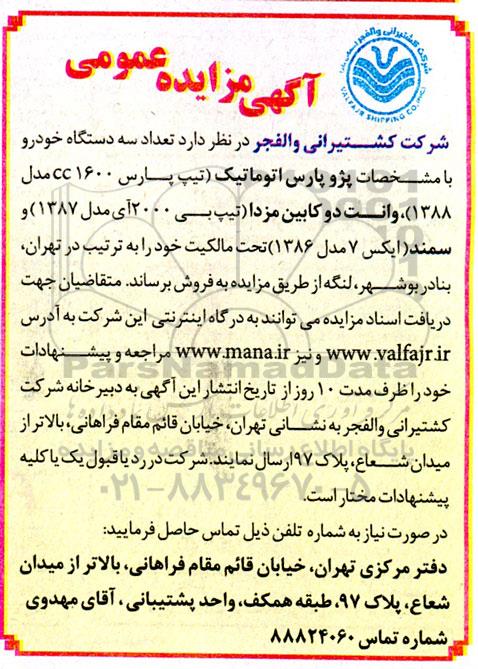 شرکت کشتیرانی والفجر
VALFAJR SHIPPING CO.(INC.)
آگهی مزایده عمومی
شرکت کشتیرانی والفجر در نظر دارد تعداد سه دستگاه خودرو
با مشخصات پژو پارس اتوماتیک (تیپ پارس ۱۶۰۰ cc مدل
۱۳۸۸)، وانت دو کابین مزدا (تیپ بی ۲۰۰۰آی مدل ۱۳۸۷) و
سمند( ایکس ۷ مدل ۱۳۸۶)تحت مالکیت خود را به ترتیب در تهران،
بنادر بوشهر، لنگه از طریق مزایده به فروش برساند. متقاضیان جهت
دریافت اسناد مزایده می توانند به درگاه اینترنتی این شرکت به آدرس
www.valfajr.ir و نیز www.mana.ir مراجعه و پیشنهادات
خود را ظرف مدت ۱۰ روز از تاریخ انتشار این آگهی به دبیرخانه شرکت
کشتیرانی والفجر به نشانی تهران، خیابان قائم مقام فراهانی، بالاتر از
میدان شعاع، پلاک ۹۷ ارسال نمایند. شرکت در رد یا قبول یک یا کلیه
پیشنهادات مختار است.
در صورت نیاز به شماره تلفن ذیل تماس حاصل فرمایید:
دفتر مرکزی تهران، خیابان قائم مقام فراهانی، بالاتر از میدان
شعاع، پلاک ۹۷، طبقه همکف، واحد پشتیبانی ، آقای مهدوی
شماره تماس ۸۸۸۲۴۰۶۰
ParsNamadData
پایگاه اطلاع رسانی مناقصه و مزایده
۰۲۱-۸۸۳۴۹۶۷۰-۵